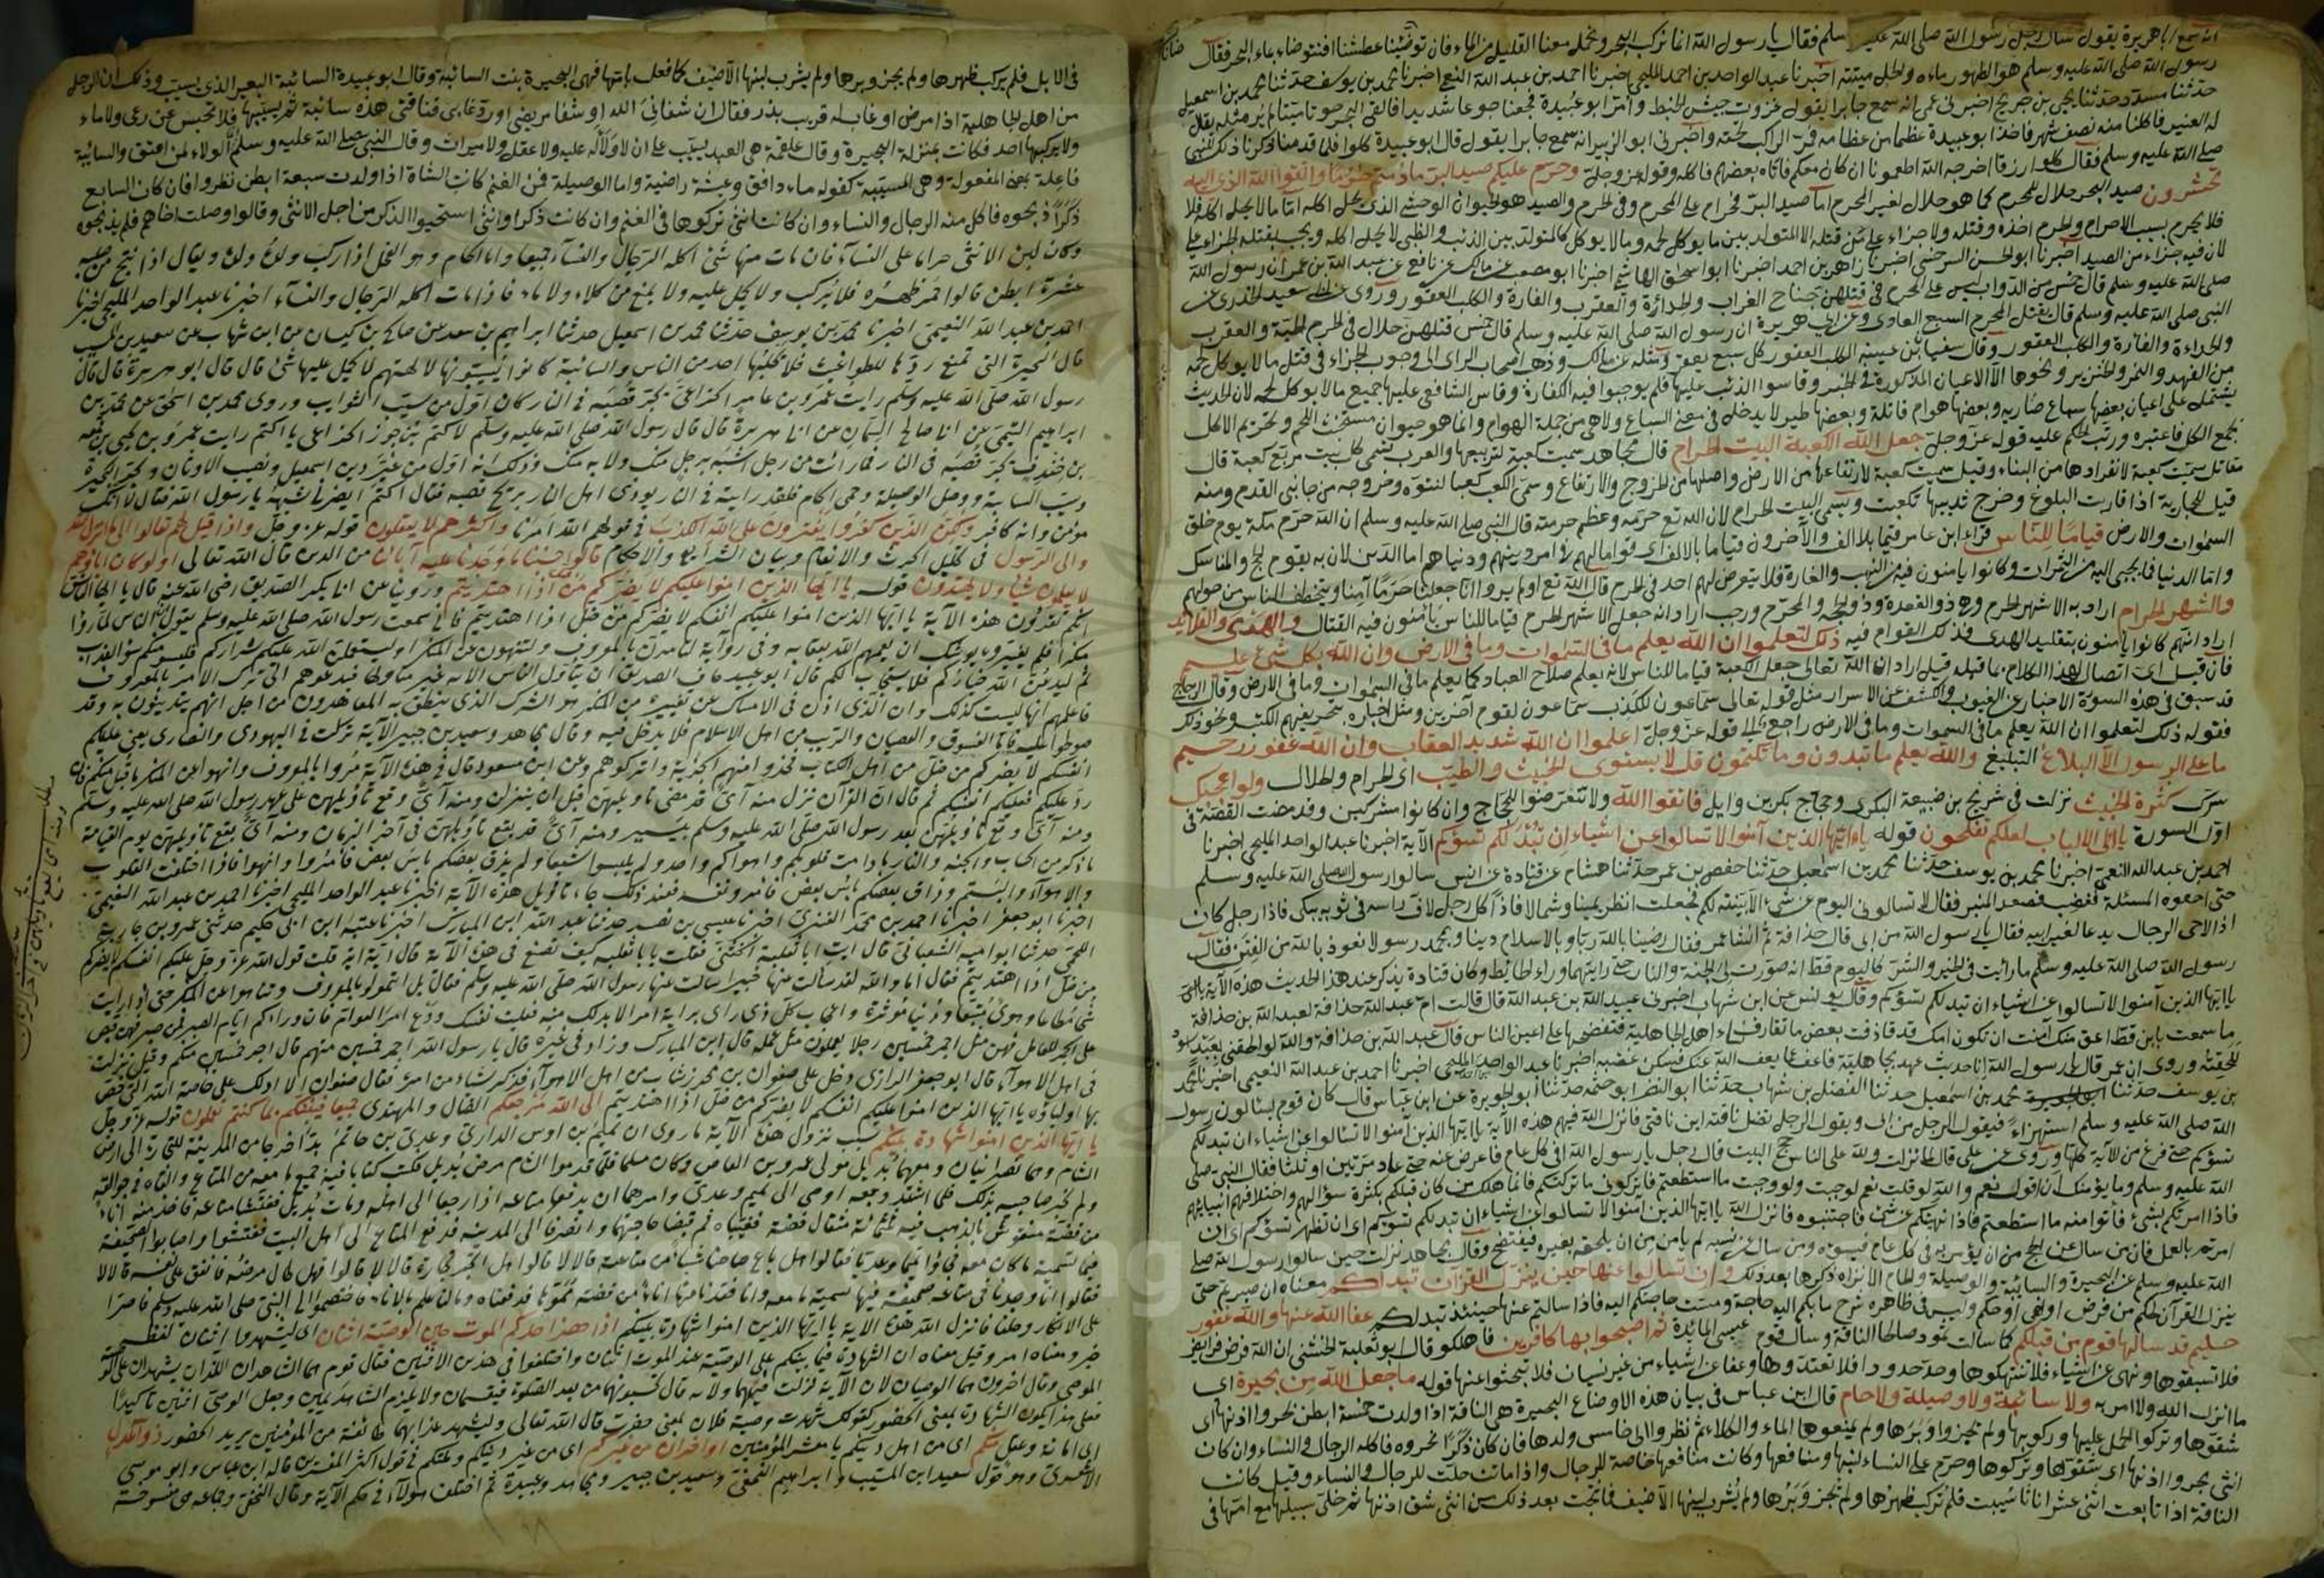 انه سمع ابا هريرة يقول سال رجل رسول الله صلى الله عليه وسلم فقال يا رسول الله انا نركب البحر ونحمل معنا القليل من الماء فان توضئنا عطشنا افنتوضاء بماء البحر فقال
رسول الله صلى الله عليه وسلم هو الطهور ماءه والحل ميتته اخبرنا عبد الواحد بن احمد المليحي اخبرنا احمد بن عبد الله النعيمي اخبرنا محمد بن يوسف حدثنا محمد بن اسمعيل
حدثنا مسدد حدثنا يحيى عن ابن جريج اخبرني عمرو انه سمع جابرا يقول غزوت جيش الخبط وامر ابو عبيدة فجعنا جوعا شديدا فالقى البحر حوتا ميتا لم ير مثله يقال
له العنبر فاكلنا منه نصف شهر فاخذ ابو عبيدة عظما من عظامه فمر الراكب تحته واخبرني ابو الزبير انه سمع جابرا يقول قال ابو عبيدة كلوا فلما قدمنا ذكرنا ذلك للنبي
صلى الله عليه وسلم فقال كلوا رزقا اخرجه الله اطعمونا ان كان معكم فاتاه بعضهم فاكله وقوله عز وجل وحرم عليكم صيد البر ما دمتم حرما واتقوا الله الذي اليه
تحشرون صيد البحر حلال للمحرم كما هو حلال لغير المحرم اما صيد البر فحرام على المحرم وفي الحرم والصيد هو الحيوان الوحشي الذي يحل اكله اما ما لا يحل اكله فلا
فلا يحرم بسبب الاحرام والحرم اخذه وقتله ولا جزاء على من قتله الا المتولد بين ما يوكل لحمه وما لا يوكل كالمتولد بين الذئب والظبي لا يحل اكله ويجب بقتله الجزاء على
لان فيه جزاء من الصيد اخبرنا ابو الحسن السرخسي اخبرنا زاهر بن احمد اخبرنا ابو اسحق الهاشمي اخبرنا ابو مصعب عن مالك عن نافع عن عبد الله بن عمر ان رسول الله
صلى الله عليه وسلم قال خمس من الدواب ليس على المحرم في قتلهن جناح الغراب والحدأة والعقرب والفارة والكلب العقور وروي عن ابي سعيد الخدري عن
النبي صلى الله عليه وسلم قال يقتل المحرم السبع العادي وعن ابي هريرة ان رسول الله صلى الله عليه وسلم قال خمس قتلهن حلال في الحرم الحية والعقرب
والحداءة والفارة والكلب العقور وقال سفيان بن عيينة الكلب العقور كل سبع يعقر ومثله عن مالك وذهب اصحاب الراي الى وجوب الجزاء في قتل ما لا يوكل لحمه
من الفهد والنمر والخنزير ونحوها الا الاعيان المذكورة في الخبر وقاسوا الذئب عليها فلم يوجبوا فيه الكفارة وقاس الشافعي عليها جميع ما لا يوكل لحمه لان الحديث
يشتمل على اعيان بعضها سباع ضاريه وبعضها هوام قاتلة وبعضها طير لا يدخل في معنى السباع ولا هي من جملة الهوام وانما هو حيوان مستخبث اللحم وتحريم الاكل
يجمع الكل فاعتبره ورتب الحكم عليه قوله عز وجل جعل الله الكعبة البيت الحرام قال مجاهد سميت كعبة لتربيعها والعرب تسمي كل بيت مربع كعبة قال
مقاتل سميت كعبة لانفرادها من البناء وقيل سميت كعبة لارتفاعها من الارض واصلها من الخروج والارتفاع وسمي الكعب كعبا لنتوه وخروجه من جانبي القدم ومنه
قيل للجارية اذا قاربت البلوغ وخرج ثديها تكعبت وتسمى البيت الحرام لان الله تع حرمه وعظم حرمته قال النبي صلى الله عليه وسلم ان الله حرم مكة يوم خلق
السموات والارض قياما للناس قراء ابن عامر قيما بلا الف والآخرون قياما بالالف اي قواما لهم في امر دينهم ودنياهم اما الدين لان به يقوم الحج والمناسك
واما الدنيا فيما يجبى اليه من الثمرات وكانوا يامنون فيه من النهب والغارة فلا يتعرض لهم احد في الحرم قال الله تع اولم يروا انا جعلنا حرما آمنا ويتخطف الناس من حولهم
والشهر الحرام اراد به الاشهر الحرم وهي ذو القعدة وذو الحجة والمحرم ورجب اراد انه جعل الاشهر الحرم قياما للناس يأمنون فيه القتال والهدي والقلائد
اراد انهم كانوا يامنون بتقليد الهدى فذلك القوام فيه ذلك لتعلموا ان الله يعلم ما في السموات وما في الارض وان الله بكل شئ عليم
فان قيل اي اتصال لهذا الكلام بما قبله قيل اراد ان الله تعالى جعل الكعبة قياما للناس لانه يعلم صلاح العباد كما يعلم ما في السموات وما في الارض وقال الزجاج
قد سبق في هذه السورة الاخبار عن الغيوب والكشف عن الاسرار مثل قوله تعالى سماعون للكذب سماعون لقوم آخرين ومثل اخباره بتحريفهم الكتب ونحو ذلك
فقوله ذلك لتعلموا ان الله يعلم ما في السموات وما في الارض راجع اليه قوله عز وجل اعلموا ان الله شديد العقاب وان الله غفور رحيم
ما على الرسول الا البلاغ التبليغ والله يعلم ما تبدون وما تكتمون قل لا يستوي الخبيث والطيب اي الحرام والحلال ولو اعجبك
سرك كثرة الخبيث نزلت في شريح بن ضبيعة البكري وحجاج بكر بن وايل فاتقوا الله ولا تتعرضوا للحجاج وان كانوا مشركين وقد مضت القصة في
اول السورة يا اولي الالباب لعلكم تفلحون قوله ياءايها الذين آمنوا لا تسالوا عن اشياء ان تبد لكم تسؤكم الآية اخبرنا عبد الواحد المليحي اخبرنا
احمد بن عبد الله النعيمي اخبرنا محمد بن يوسف حدثنا محمد بن اسمعيل حدثنا حفص بن عمر حدثنا هشام عن قتادة عن انس سالوا رسول الله صلى الله عليه وسلم
حتى احفوه المسئلة فغضب فصعد المنبر فقال لا تسالوني اليوم عن شئ الا بينته لكم فجعلت انظر يمينا وشمالا فاذا كل رجل لاف راسه في ثوبه يبكي فاذا رجل كان
اذا لاحى الرجال يدعا لغير ابيه فقال يا رسول الله من ابي قال حذافة ثم انشأ عمر فقال رضينا بالله ربا وبالاسلام دينا وبمحمد رسولا نعوذ بالله من الفتن فقال
رسول الله صلى الله عليه وسلم ما رايت في الخير والشر كاليوم قط انه صورت لي الجنة والنار حتى رايتهما وراء الحائط وكان قتادة يذكر عند هذا الحديث هذه الآية
ياايها الذين آمنوا لا تسالوا عن اشياء ان تبد لكم تسؤكم وقال يونس عن ابن شهاب اخبرني عبيد الله بن عبد الله قال قالت ام عبد الله حذافة لعبد الله بن حذافة
ما سمعت بابن قط اعق منك أمنت ان تكون امك قد قاذفت بعض ما تقارف نساء اهل الجاهلية فتفضحها على اعين الناس قال عبد الله بن حذافة والله لو الحقني بعبد اسود
للحقته وروي ان عمر قال يا رسول الله انا حديث عهد بجاهلية فاعف عنا يعف الله عنك فسكن غضبه اخبرنا عبد الواحد المليحي اخبرنا احمد بن عبد الله النعيمي اخبرنا محمد
بن يوسف حدثنا محمد بن اسمعيل حدثنا الفضل بن شهاب حدثنا ابو النضر ابو خيثمه حدثنا ابو الجويرية عن ابن عباس قال كان قوم يسالون رسول
الله صلى الله عليه وسلم استهزاء فيقول الرجل من ابي ويقول الرجل تضل ناقته اين ناقتي فانزل الله فيهم هذه الآية يا ايها الذين آمنوا لا تسالوا عن اشياء ان تبد لكم
تسؤكم حتى فرغ من الآية كلها وروي عن علي قال لما نزلت ولله على الناس حج البيت قال رجل يا رسول الله افي كل عام فاعرض عنه حتى عاد مرتين او ثلثا فقال النبي صلى
الله عليه وسلم وما يؤمنك ان اقول نعم والله لو قلت نعم لوجبت ولو وجبت ما استطعتم فاتركوني ما تركتكم فانما هلك من كان قبلكم بكثرة سؤالهم واختلافهم انبيائهم
فاذا امرتكم بشئ فأتوا منه ما استطعتم فاذا نهيتكم عن شئ فاجتنبوه فانزل الله ياايها الذين آمنوا لا تسالوا عن اشياء ان تبد لكم تسؤكم اي ان تظهر تسؤكم اي ان
امرتم بالعمل فان من سال عن الحج من ان يؤمر به في كل عام فيسوءه ومن سال عن نسبه لم يامن من ان يلحقه بغيره فيفتضح وقال مجاهد نزلت حين سالوا رسول الله صلى
الله عليه وسلم عن البحيرة والسائبة والوصيلة والحام الا تراه ذكرها بعد ذلك وان تسالوا عنها حين ينزل القرآن تبد لكم معناه ان صبرتم حتى
ينزل القرآن بحكم من فرض او نهي او حكم وليس في ظاهره شرح ما بكم اليه حاجة ومست حاجتكم اليه فاذا سالتم عنها حينئذ تبد لكم عفا الله عنها والله غفور
حليم قد سالها قوم من قبلكم كما سالت ثمود صالحا الناقة وسال قوم عيسى المائدة ثم اصبحوا بها كافرين فاهلكو قال ابو ثعلبة الخشني ان الله فرض فرايض
فلا تسبقوها ونهى عن اشياء فلا تنتهكوها وحد حدودا فلا تعتدوها وعفا عن اشياء من غير نسيان فلا تبحثوا عنها قوله ما جعل الله من بحيرة اي
ما انزل الله ولا امر به ولا سائبة ولا وصيلة ولا حام قال ابن عباس في بيان هذه الاوضاع البحيرة هي الناقة اذا ولدت خمسة ابطن نحروا اذنها اي
شقوها وتركوا الحمل عليها وركوبها ولم يجزوا وبرها ولم يمنعوها الماء والكلاء ثم نظروا الى خامس ولدها فان كان ذكرا نحروه فاكله الرجال والنساء وان كان
انثى بحروا اذنها اي شقوها وتركوها وحرم على النساء لبنها ومنافعها وكانت منافعها خاصة للرجال واذا ماتت حلت للرجال والنساء وقيل كانت
الناقة اذا تابعت اثنى عشر اناثا سيبت فلم تركب ظهرها ولم تجز وبرها ولم يشرب لبنها الا ضيف فما نتجت بعد ذلك من انثى شق اذنها ثم خلي سبيلها مع امها في
في الابل فلم يركب ظهرها ولم يجز وبرها ولم يشرب لبنها الا ضيف كما فعل بامها فهي البحيرة بنت السائبة وقال ابو عبيدة السائبة البعير الذي يسيب وذلك ان الرجل
من اهل الجاهلية اذا مرض او غاب له قريب نذر فقال ان شفاني الله او شفا مريضي او رد غايبي فناقتي هذه سائبة ثم يسيبها فلا تحبس عن رعي ولا ماء
ولا يركبها احد فكانت بمنزلة البحيرة وقال علقمة هي العبد يسيب على ان لا ولاء له عليه ولا عقل ولا ميراث وقال النبي صلى الله عليه وسلم انما الولاء لمن اعتق والسائبة
فاعلة بمعنى المفعولة وهي المسيبة كقوله ماء دافق وعيشة راضية واما الوصيلة فمن الغنم كانت الشاة اذا ولدت سبعة ابطن نظروا فان كان السابع
ذكرا ذبحوه فاكل منه الرجال والنساء وان كانت انثى تركوها في الغنم وان كانت ذكرا وانثى استحيوا الذكر من اجل الانثى وقالوا وصلت اخاهم فلم يذبحوه
وكان لبن الانثى حراما على النساء فان مات منها شئ اكله الرجال والنساء جميعا واما الحام وهو الفحل اذا ركب ولد ولده ويقال اذا نتج من صلبه
عشرة ابطن قالوا حمي ظهره فلا يركب ولا يحمل عليه ولا يمنع من كلاء ولا ماء فاذا مات اكله الرجال والنساء اخبرنا عبد الواحد المليحي اخبرنا
احمد بن عبد الله النعيمي اخبرنا محمد بن يوسف حدثنا محمد بن اسمعيل حدثنا ابراهيم بن سعد عن صالح بن كيسان عن ابن شهاب عن سعيد بن المسيب
قال البحيرة التي تمنع درها للطواغيت فلا يحلبها احد من الناس والسائبة كانوا يسيبونها لالهتهم لا يحمل عليها شئ قال قال ابو هريرة قال قال
رسول الله صلى الله عليه وسلم رايت عمرو بن عامر الخزاعي يجر قصبه في النار كان اول من سيب السوايب وروى محمد بن اسحق عن محمد بن
ابراهيم التيمي عن ابي صالح السمان عن ابي هريرة قال قال رسول الله صلى الله عليه وسلم لاكثم بن جوز الخزاعي يا اكثم رايت عمرو بن لحي بن قمعة
بن خندف يجر قصبه في النار فما رايت من رجل اشبه برجل منك ولا به منك وذلك انه اول من غير دين اسمعيل ونصب الاوثان وبحر البحيرة
وسيب السايبة ووصل الوصيلة وحمى الحام فلقد رايته في النار يوذي اهل النار بريح قصبه فقال اكثم ايضرني شبهه يا رسول الله فقال لا انك
مؤمن وانه كافر ولكن الذين كفروا يفترون على الله الكذب في قولهم الله امرنا واكثرهم لا يعقلون قوله عز وجل واذا قيل لهم تعالوا الى ما انزل الله
والى الرسول في تحليل الحرث والانعام وبيان الشرايع والاحكام قالوا حسبنا ما وجدنا عليه آباءنا من الدين قال الله تعالى اولو كان اباؤهم
لا يعلمون شيئا ولا يهتدون قوله يا ايها الذين امنوا عليكم لا يضركم من ضل اذا اهتديتم وروينا عن ابي بكر الصديق رضي الله عنه قال يا ايها الناس
انكم تقرؤن هذه الآية يا ايها الذين امنوا عليكم انفسكم لا يضركم من ضل اذا اهتديتم فاني سمعت رسول الله صلى الله عليه وسلم يقول ان الناس اذا رأوا
منكرا فلم يغيروه يوشك ان يعمهم الله بعقابه وفي رواية لتأمرن بالمعروف ولتنهون عن المنكر او ليسلطن الله عليكم شراركم فليسومنكم سوء العذاب
ثم ليدعن الله خياركم فلا يستجاب لكم قال ابو عبيد خاف الصديق ان يتأول الناس الآية غير متاولها فيدعوهم الى ترك الامر بالمعروف
فاعلمهم انها ليست كذلك وان الذي اذن في الامساك عن تغييره من المنكر هو الشرك الذي ينطق به المعاهدون من اجل انهم يتدينون به وقد
صولحوا عليه فاما الفسوق والعصيان والريب من اهل الاسلام فلا يدخل فيه وقال مجاهد وسعيد بن جبير الآية نزلت في اليهودي والنصارى يعني عليكم
انفسكم لا يضركم من ضل من اهل الكتاب فخذوا منهم الجزية واتركوهم وعن ابن مسعود قال في هذه الآية مروا بالمعروف وانهوا عن المنكر ما قبل منكم فان
رد عليكم فعليكم انفسكم ثم قال ان القرآن نزل منه آي قد مضى تاويلهن قبل ان ينزلن ومنه آي وقع تأويلهن على عهد رسول الله صلى الله عليه وسلم
ومنه آي وقع تاويلهن بعد رسول الله صلى الله عليه وسلم بيسير ومنه آي قد يقع تأويلهن في آخر الزمان ومنه آي يقع تأويلهن يوم القيامة
ما ذكر من الحساب والجنة والنار ما دامت قلوبكم واهواكم واحد ولم يلبسوا شيعا ولم يذق بعضكم باس بعض فأمروا وانهوا فاذا اختلفت القلوب
والاهواء والبستم وذاق بعضكم بأس بعض فامرء ونفسه فعند ذلك جاء تاويل هذه الآية اخبرنا عبد الواحد المليحي اخبرنا احمد بن عبد الله النعيمي
اخبرنا ابو جعفر اخبرنا احمد بن محمد العنزي اخبرنا عيسى بن نصر حدثنا عبد الله ابن المبارك اخبرنا عتبة ابن ابي حكيم حدثني عمرو بن جارية
اللخمي حدثنا ابو امية الشعباني قال اتيت ابا ثعلبة الخشني فقلت يا با ثعلبة كيف تصنع في هذه الآية قال آية اية قلت قول الله عز وجل عليكم انفسكم لا يضركم
من ضل اذا اهتديتم فقال اما والله لقد سألت عنها خبيرا سالت عنها رسول الله صلى الله عليه وسلم فقال بل ائتمروا بالمعروف وتناهوا عن المنكر حتى اذا رايت
شحا مطاعا وهوى متبعا ودنيا مؤثرة واعجاب كل ذي راي برايه امرا لا بد لك منه فعليك نفسك ودع امر العوام فان وراءكم ايام الصبر فمن صبر فيهن قبض
على الجمر للعامل فيهن مثل اجر خمسين رجلا يعملون مثل عمله قال ابن المبارك وزاد في غيره قال يا رسول الله اجر خمسين منهم قال اجر خمسين منكم وقيل نزلت
في اهل الاهواء قال ابو جعفر الرازي دخل على صفوان بن محرز شاب من اهل الاهواء فذكر شئا من امره فقال صفوان الا ادلك على خاصة الله التي خص
بها اولياؤه يا ايها الذين امنوا عليكم انفسكم لا يضركم من ضل اذا اهتديتم الى الله مرجعكم الضال والمهتدي جميعا فينبئكم بما كنتم تعملون قوله عز وجل
يا ايها الذين امنوا شهادة بينكم سبب نزول هذه الآية ما روي ان تميم بن اوس الداري وعدي بن حاتم بدا خرجا من المدينة للتجارة الى ارض
الشام وهما نصرانيان ومعهما بديل مولى عمرو بن العاص وكان مسلما فلما قدموا الشام مرض بديل فكتب كتابا فيه جميع ما معه من المتاع والقاه في جوالقه
ولم يخبر صاحبيه بذلك فلما اشتد وجعه اوصى الى تميم وعدي وامرهما ان يدفعا متاعه اذا رجعا الى اهله ومات بديل ففتشا متاعه فاخذ منه اناء
من فضة منقوش بالذهب فيه ثلثمائة مثقال فضة فغيباه ثم قضيا حاجتهما وانصرفا الى المدينة فدفع المتاع الى اهل البيت ففتشوا واصابوا الصحيفة
فيها تسمية ما كان معه فجاؤا تميما وعديا فقالوا هل باع صاحبنا شئا من متاعه قالا لا قالوا هل اتجر تجارة قالا لا قالوا فهل طال مرضه فانفق على نفسه قالا لا
فقالوا انا وجدنا في متاعه صحيفة فيها تسمية ما معه وانا فقدنا منها اناء من فضة مموها قد دفعناه وما لنا علم بالاناء فاختصموا الى النبي صلى الله عليه وسلم فاصرا
على الانكار وحلفا فانزل الله هذه الآية يا ايها الذين امنوا شهادة بينكم اذا حضر احدكم الموت حين الوصية اثنان اي ليشهدوا اثنان لفظه
خبر ومعناه امر وقيل معناه ان الشهادة فيما بينكم على الوصية عند الموت اثنان واختلفوا في هذين الاثنين فقال قوم هما الشاهدان اللذان يشهدان على
الموصي وقال اخرون هما الوصيان لان الآية نزلت فيهما ولانه قال تحبسونهما من بعد الصلوة فيقسمان ولا يلزم الشاهد يمين وجعل الوصي اثنين تاكيدا
فعلى هذا يكون الشهادة بمعنى الحضور كقولك شهدت وصية فلان بمعنى حضرت قال الله تعالى وليشهد عذابهما طائفة من المؤمنين يريد الحضور ذوا عدل
اي امانة وعقل منكم اي من اهل دينكم يا معشر المؤمنين او آخران من غيركم اي من غير دينكم وملتكم في قول اكثر المفسرين قاله ابن عباس وابو موسى
الاشعري وهو قول سعيد ابن المسيب وابراهيم النخعي وسعيد بن جبير ومجاهد وعبيدة ثم اختلف هولاء في حكم الآية وقال النخعي وجماعة هي منسوخة